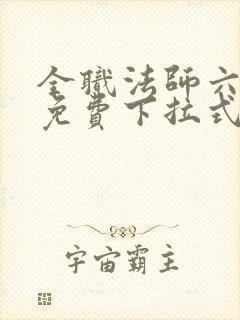 全職法師六
免費下拉式
宇宙霸主